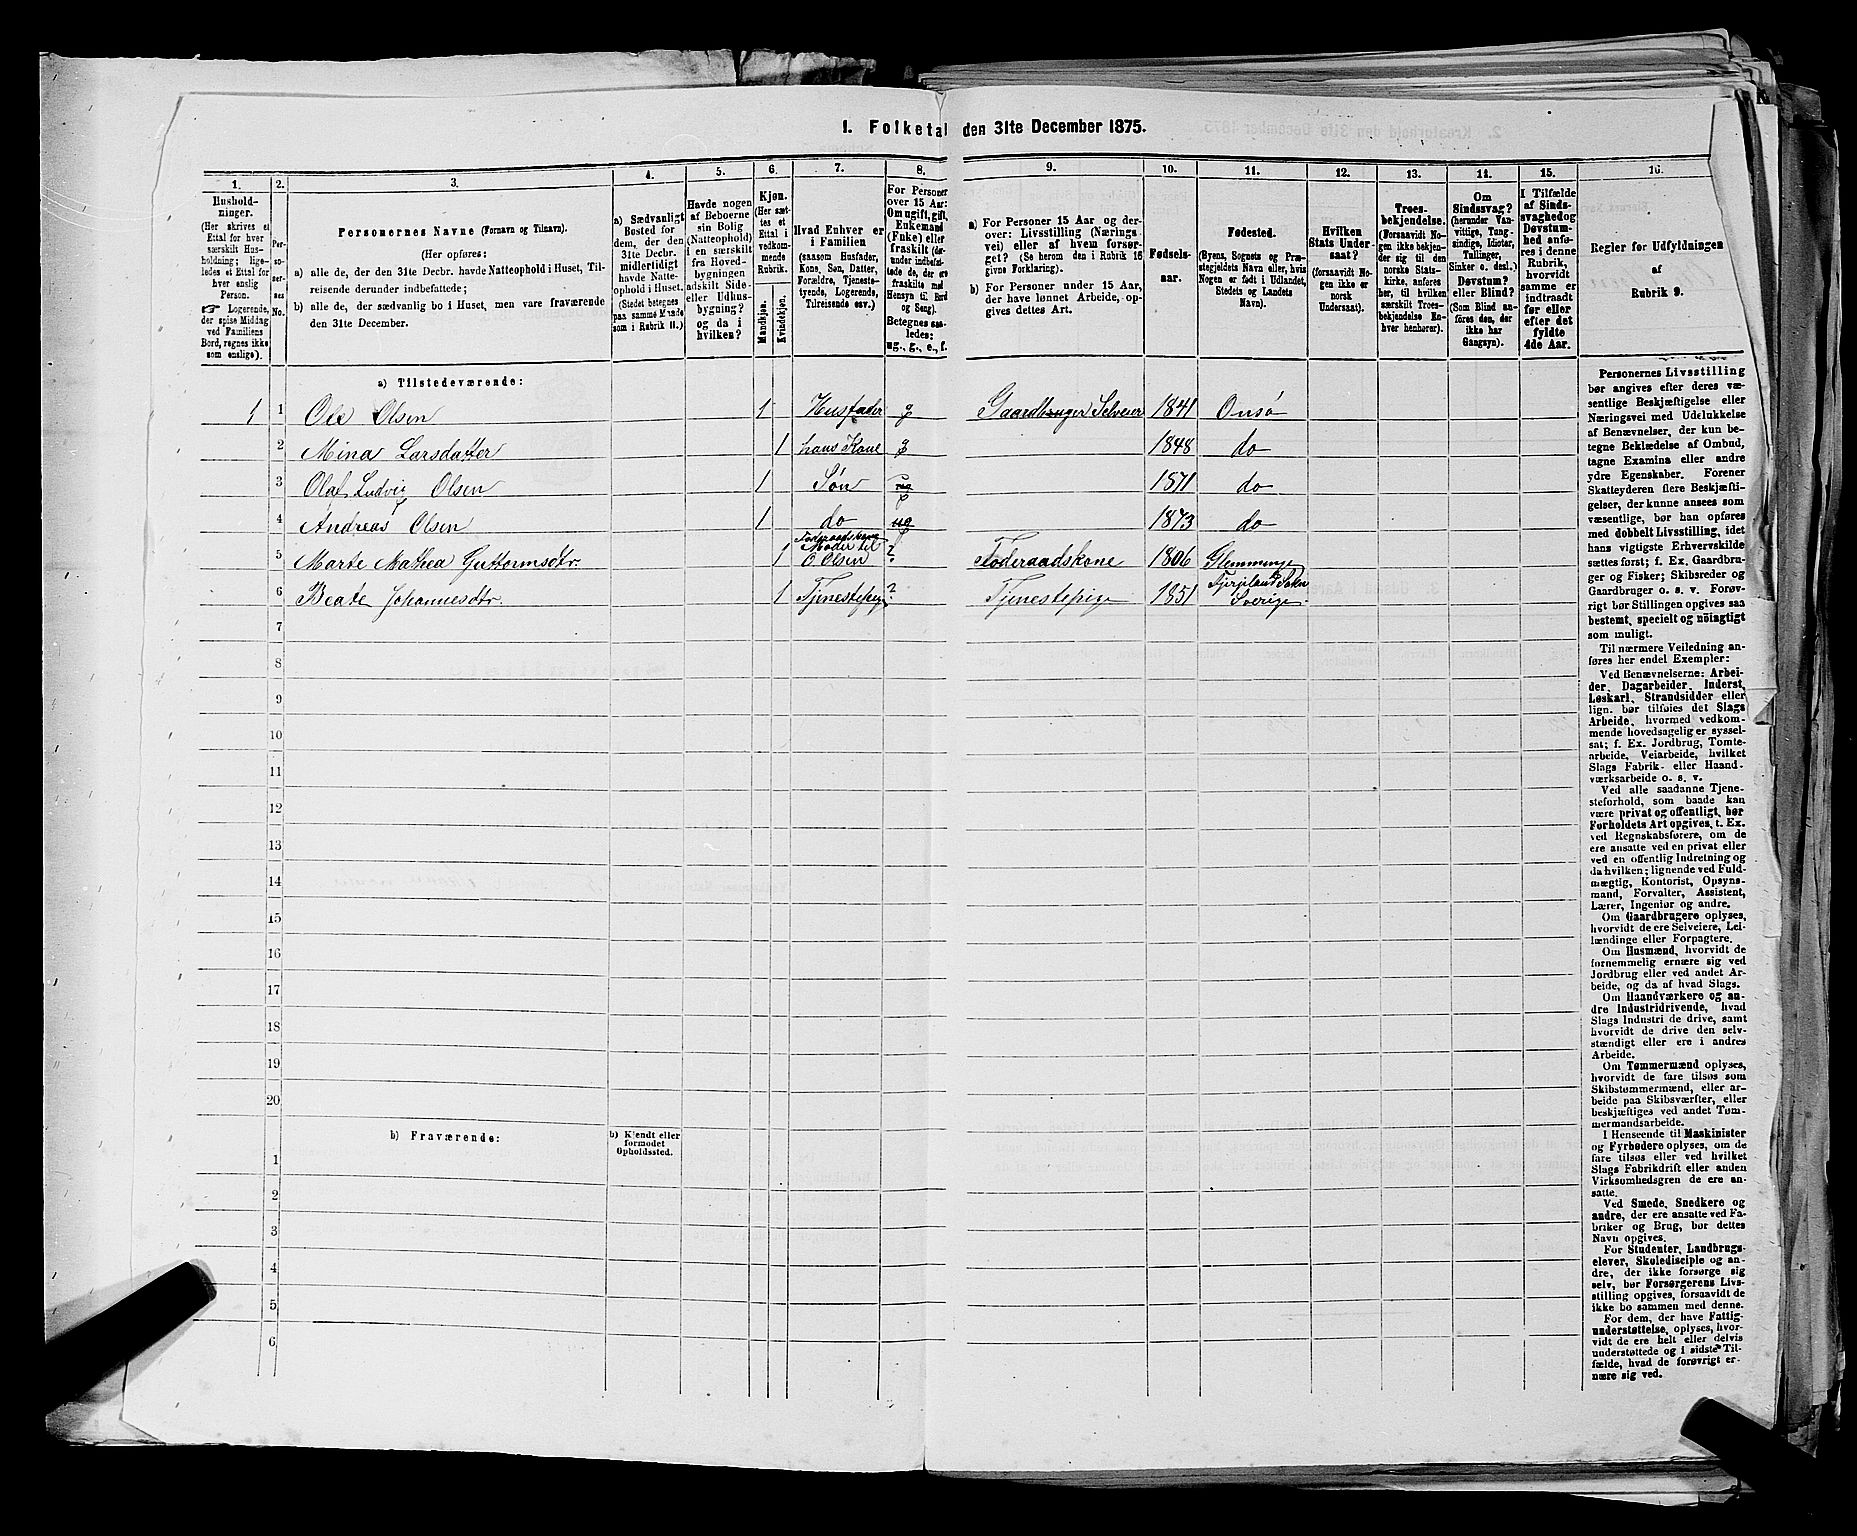 1. Folketal den 31te December 1875.
1. 2. 3. 4. 5. 6. 7. 8. 9. 10. 11. 12. 13. 14. 15. 16.
Husholdninger.
(Her skrives et
Ettal for hver
særskilt Husholdning;
ligeledes et Ettal for
hver enslig
Person.
☞ Logerende,
der spise Middag
ved Familiens
Bord, regnes ikke
som enslige).
Personernes No.
Personernes Navne (Fornavn og Tilnavn).
(Her opføres:
a) alle de, der den 31te Decbr. havde Natteophold i Huset, Tilreisende
derunder indbefattede;
b) alle de, der sædvanlig bo i Huset, men vare fraværende
den 31te December.
a) Sædvanligt
Bosted for
dem, der den
31te Decbr.
midlertidigt
havde Natteophold
i Huset.
(Stedet betegnes
paa samme Maade
som i Rubrik 11.)
Havde nogen
af Beboerne
sin Bolig
(Natteophold)
i en særskilt
fra Hovedbygningen
adskilt Side-
eller Udhusbygning?
og da i
hvilken?
Kjøn.
(Her sættes
et
Ettal i
vedkommende
Rubrik.
Mandkjøn.
Kvindekjøn.
Hvad Enhver er
i Familien
(saasom Husfader,
Kone, Søn, Datter,
Forældre, Tjenestetyende,
Logerende,
Tilreisende osv.)
For Personer
over 15 Aar:
Om ugift, gift,
Enkemand
(Enke) eller
fraskilt (derunder
indbefattede
de, der ere
fraskilte med
Hensyn til Bord
og Seng).
Betegnes saaledes:
ug., g., e., f.
a) For Personer 15 Aar og derover:
Livsstilling (Næringsvei)
eller af hvem forsørget?
(Se herom den i Rubrik 16
givne Forklaring).
b) For Personer under 15 Aar,
der have lønnet Arbeide, opgives
dettes Art.
Fødselsaar.
Fødested.
(Byens, Sognets og Præstegjeldets
Navn eller, hvis
Nogen er født i Udlandet,
Stedets og Landets
Navn).
Hvilken
Stats Undersaat?
(forsaavidt Nogen
ikke er
norsk
Undersaat).
Troesbekjendelse.
(Forsaavidt Nogen
ikke bekjender
sig til den
norske Statskirke,
anføres
her, til hvilken
særskilt Troesbekjendelse
Enhver
henhører).
Om
Sindssvag?
(herunder Vanvittige,
Tungsindige,
Idioter,
Tullinger,
Sinker o. desl.)
Døvstum?
eller Blind?
(Som Blind anføres
den, der
ikke har
Gangsyn).
I Tilfælde
af Sindssvaghed og
Døvstumhed
anføres
i denne
Rubrik,
hvorvidt
samme er
indtraadt
før eller
efter det
fyldte
4de Aar.
Regler for Udfyldningen
af
Rubrik 9.
a) Tilstedeværende:
1 1 Ole Olsen 1 Husfader g Gaardbruger Selveier 1841 Onsø
2 Mina Larsdatter 1 hans Kone g 1848 do
3 Olaf Ludvig Olsen 1 Søn ug 1871 do
4 Andreas Olsen 1 do ug 1873 do
5 Marte Mathea Guttormsdtr. 1 Foderaadskone Moder til O. Olsen ? Foderaadskone 1806 Glemminge
6 Beate Johannesdtr. 1 Tjenestepig ? Tjenestepige 1851 Sokn Sverige.
7
8
9
10
11
12
13
14
15
16
17
18
19
20
b) Fraværende:
b) Kjendt eller
formodet
Opholdssted.
1
2
3
4
5
6
Personernes Livsstilling
bør angives efter deres væsentlige
Beskjæftigelse eller
Næringsvei med Udelukkelse
af Benævnelser, der kun betegne
Beklædelse af Ombud,
tagne Examina eller andre
ydre Egenskaber. Forener
Skatteyderen flere Beskjæftigelser,
der kunne ansees som
væsentlige, bør han opføres
med dobbelt Livsstilling, idet
hans vigtigste Erhvervskilde
sættes først; f. Ex. Gaardbruger
og Fisker; Skibsreder og
Gaardbruger o. s. v. Forøvrigt
bør Stillingen opgives saa
bestemt, specielt og nøiagtigt
som muligt.
Til nærmere Veiledning anføres
her endel Exempler:
Ved Benævnelserne: Arbeider,
Dagarbeider, Inderst,
Løskarl, Strandsidder eller
lign. bør tilføies det Slags
Arbeide, hvormed vedkommende
hovedsagelig er sysselsat;
f. Ex. Jordbrug, Tomtearbeide,
Veiarbeide, hvilket
Slags Fabrik- eller Haandværksarbeide
o. s. v.
Ved alle saadanne Tjenesteforhold,
som baade kan
være privat og offentligt, bør
Forholdets Art opgives, t. Ex.
ved Regnskabsførere, om de
ere ansatte ved en privat eller
ved en offentlig Indretning og
da hvilken; lignende ved Fuldmægtig,
Kontorist, Opsynsmand,
Forvalter, Assistent,
Lærer, Ingeniør og andre.
Om Gaardbrugere oplyses,
hvorvidt de ere Selveiere, Leilændinge
eller Forpagtere.
Om Husmænd, hvorvidt de
fornemmelig ernære sig ved
Jordbrug eller ved andet Arbeide,
og da af hvad Slags.
Om Haandværkere og andre
Industridrivende, hvad
Slags Industri de drive, samt
hvorvidt de drive den selvstændigt
eller ere i andres
Arbeide.
Om Tømmermænd oplyses,
hvorvidt de fare tilsøs som
Skibstømmermænd, eller arbeide
paa Skibsværfter, eller
beskjæftiges ved andet Tømmermandsarbeide.
I Henseende til Maskinister
og Fyrbødere oplyses, om de
fare tilsøs eller ved hvilket
Slags Fabrikdrift eller anden
Virksomhedsgren de ere ansatte.
Ved Smede, Snedkere og
andre, der ere ansatte ved Fabriker
og Brug, bør dettes
Navn opgives.
For Studenter, Landbrugselever,
Skoledisciple og andre,
der ikke forsørge sig
selv, bør Forsørgerens Livsstilling
opgives, forsaavidt de
ikke bo sammen med denne.
For dem, der have Fattigunderstøttelse,
oplyses, hvorvidt
de ere helt eller delvis
understøttede og i sidste Tilfælde,
hvad de forøvrigt ernære
sig ved.